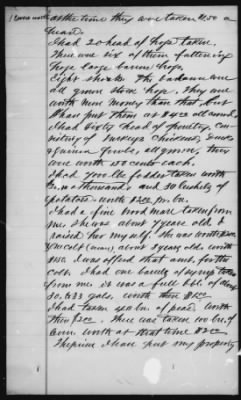 at the time they were taken $150 a
head.
I had 20 head of hogs taken.
There were six of them fattening
hogs large bacon hogs
Eight shoats the balance were
all grown stock hogs. They are
worth more money than that but
I have put them at $4.00 all around.
I had sixty head of poultry, con
sisting of turkeys chickens ducks
guinea fowls, all grown, they
were worth 50 cents each.
I had 4000 lbs fodder taken worth
thousand and 30 bushels of
potatoes worth $2.00 pr. bu.
I had a fine brood mare taken from
me. She was about 7 years old. I
raised her myself. She was worth
One colt (mare) about 2 years old worth
$150. I was offered that amt. for the
colt. I had one barrel of syrup taken
from me. it was a full bbl. of about
30, to 33 gals. worth then
I had taken bu. of peas worth
then $2.00. There was taken 100 bu. of
Corn worth at that time $2.00
The price I have put my property